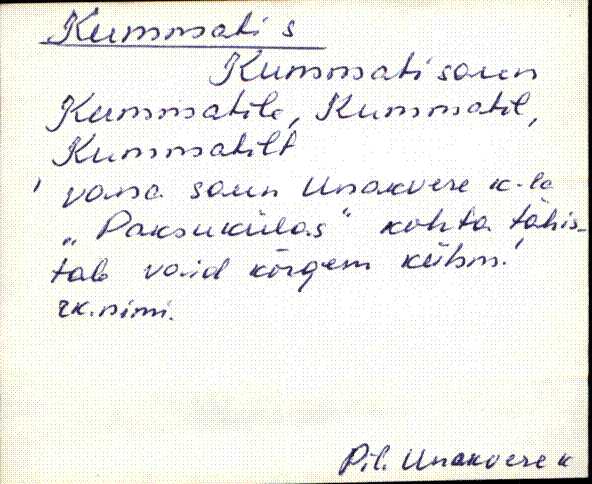 Kummati s
Kummati saun
Kummatile, Kummatil,
Kummatilt
' vana saun Unakvere k-la
„Paksukülas“ kohta tähis-
tab vaid kõrgem kühm.'
rk. nimi.
Pil. Unakvere k